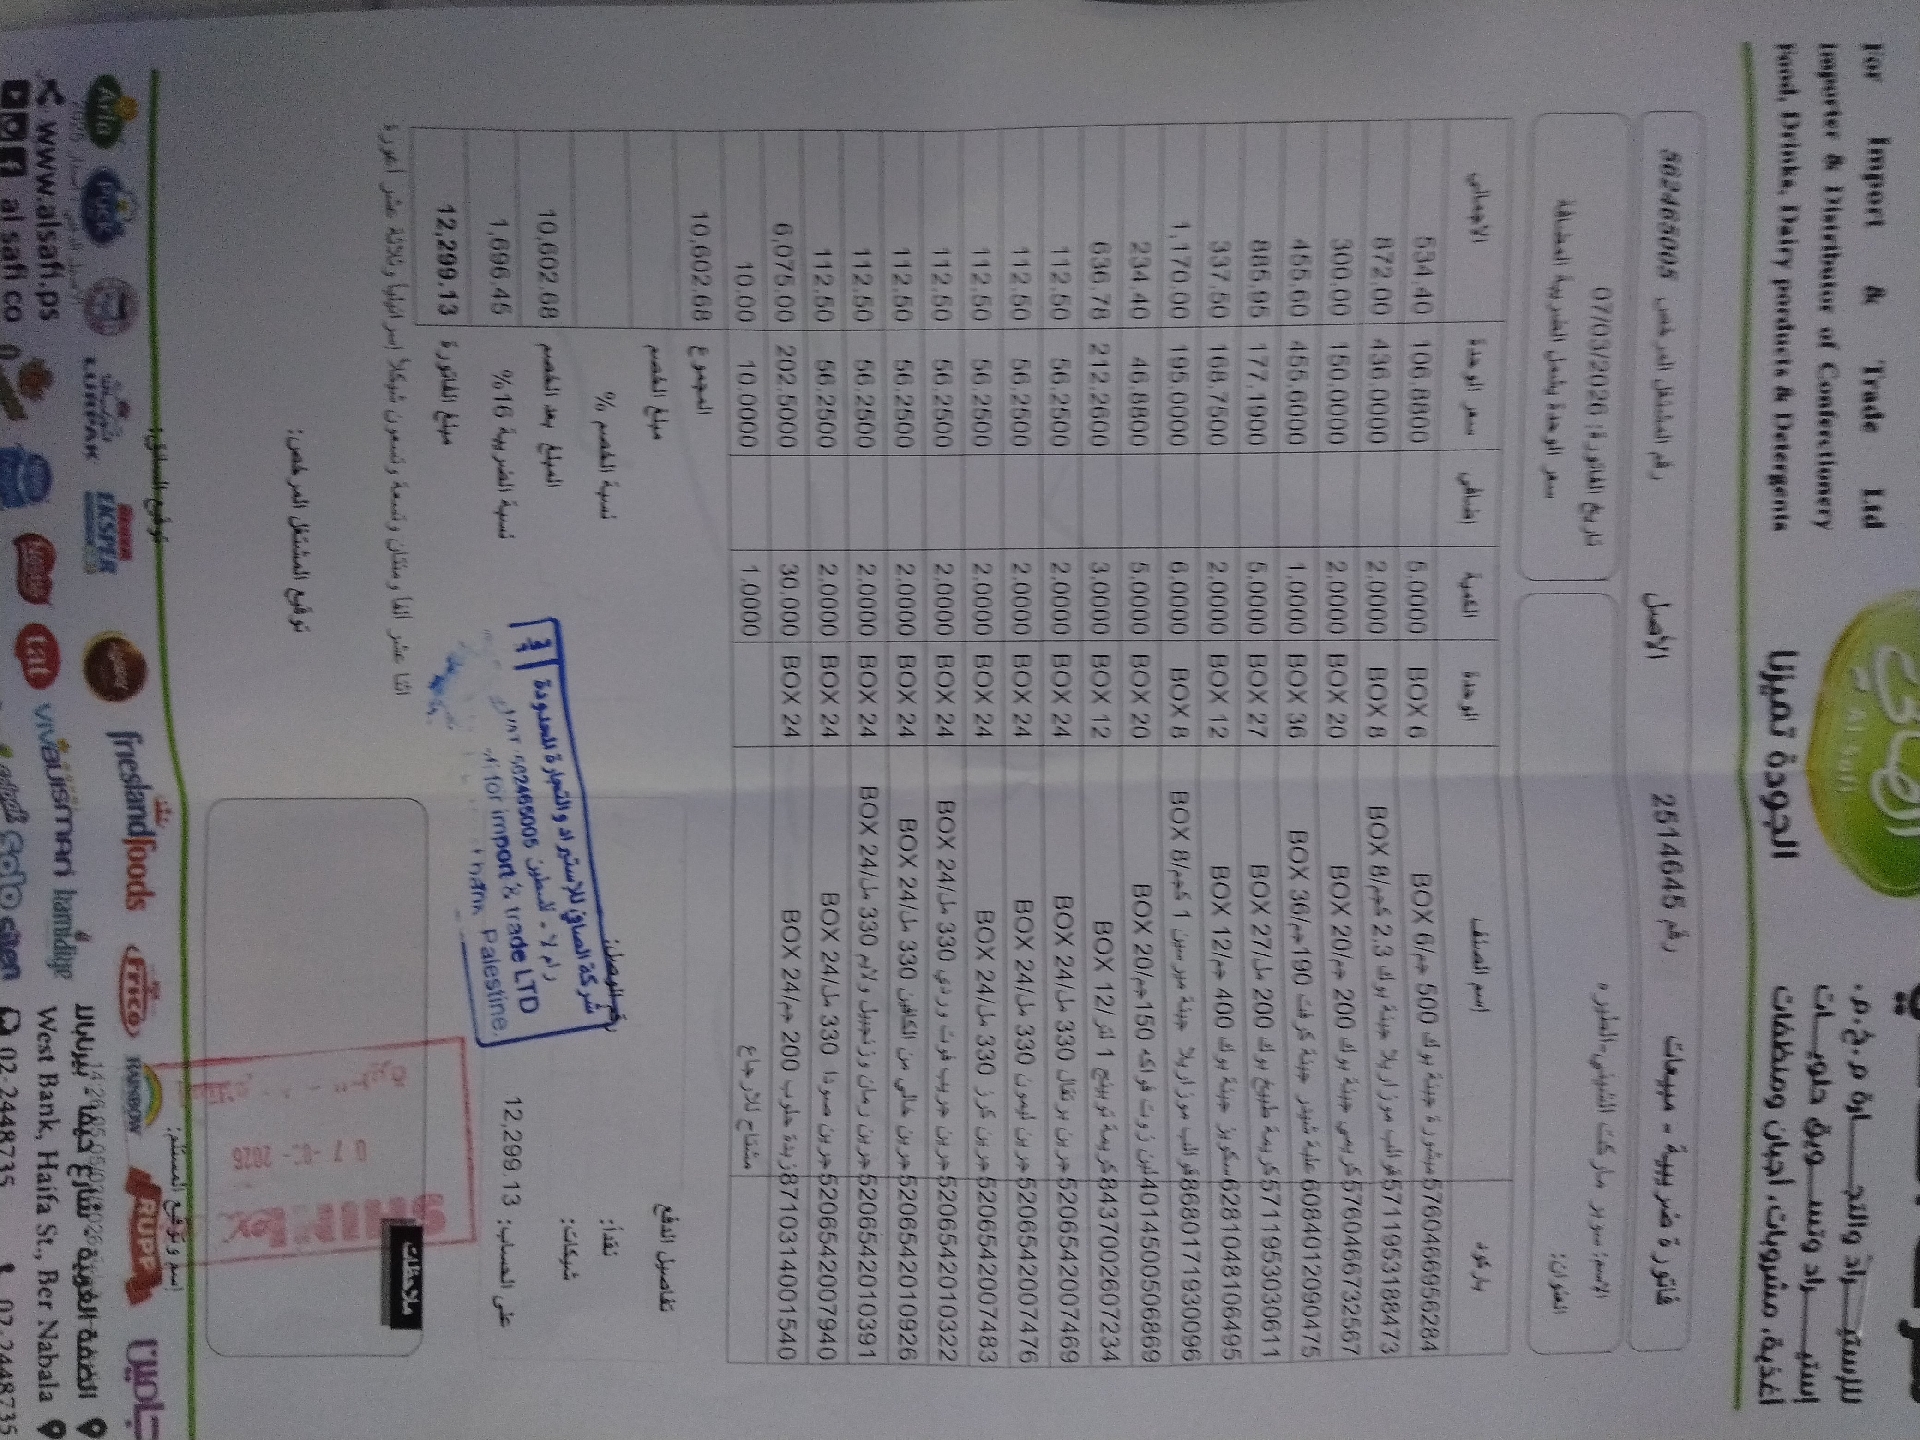 For Import & Trade Ltd
Importer & Distributor of Confectionery
Food, Drinks, Dairy porducts & Detergents
الصافي
Al Safi
الجودة تميزنا
للإستيـــراد والتجـــارة م.خ.م.
إستيــراد وتســـويق حلويـــات
أغذية، مشروبات، أجبان ومنظفات
فاتورة ضريبية - مبيعات رقم 2514645 الأصل رقم المشتغل المرخص 562465005
الاسم: سوبر ماركت الشيني-الطيره
العنوان:
تاريخ الفاتورة: 07/03/2026
سعر الوحدة يشمل الضريبة المضافة
باركود اسم الصنف الوحدة الكمية إضافي سعر الوحدة الاجمالي
5760466956284 مبشورة جبنة بوك 500 جم/BOX 6 BOX 6 5.0000 106.8800 534.40
5711953188473 قوالب موزاريلا جبنة بوك 2.3 كجم/BOX 8 BOX 8 2.0000 436.0000 872.00
5760466732567 كريمي جبنة بوك 200 جم/BOX 20 BOX 20 2.0000 150.0000 300.00
6084012090475 علبة شيدر جبنة كرفت 190جم/BOX 36 BOX 36 1.0000 455.6000 455.60
5711953030611 كريمة طبيخ بوك 200 مل/BOX 27 BOX 27 5.0000 177.1900 885.95
6281048106495 سكويز جبنة بوك 400 جم/BOX 12 BOX 12 2.0000 168.7500 337.50
8680171930096 قوالب موزاريلا جبنة ميرسين 1 كجم/BOX 8 BOX 8 6.0000 195.0000 1,170.00
4014500506869 لبن زوت فواكه 150جم/BOX 20 BOX 20 5.0000 46.8800 234.40
8437002607234 كريمة توبينج 1 لتر/BOX 12 BOX 12 3.0000 212.2600 636.78
5206542007469 جرين برتقال 330 مل/BOX 24 BOX 24 2.0000 56.2500 112.50
5206542007476 جرين ليمون 330 مل/BOX 24 BOX 24 2.0000 56.2500 112.50
5206542007483 جرين كرز 330 مل/BOX 24 BOX 24 2.0000 56.2500 112.50
5206542010322 جرين جريب فوت وردي 330 مل/BOX 24 BOX 24 2.0000 56.2500 112.50
5206542010926 جرين خالي من الكافين 330 مل/BOX 24 BOX 24 2.0000 56.2500 112.50
5206542010391 جرين رمان وزنجبيل ولايم 330 مل/BOX 24 BOX 24 2.0000 56.2500 112.50
5206542007940 جرين صودا 330 مل/BOX 24 BOX 24 2.0000 56.2500 112.50
8710314001540 زبدة حلوب 200 جم/BOX 24 BOX 24 30.000 202.5000 6,075.00
مشتاح للارجاع 1.0000 10.0000 10.00
المجموع 10,602.68
مبلغ الخصم
نسبة الخصم %
المبلغ بعد الخصم 10,602.68
نسبة الضريبة 16% 1,696.45
مبلغ الفاتورة 12,299.13
تفاصيل الدفع
نقداً:
شيكات:
على الحساب: 12,299.13
رقم الوصل:
شركة الصافي للاستيراد والتجارة المحدودة
رام لا - فلسطين 562465005
for import & trade LTD
Palestine.
اثنا عشر ألفاً ومئتان وتسعة وتسعون شيكلاً إسرائيلياً وثلاثة عشر أغورة
توقيع المشتغل المرخص:
ملاحظات
07-03-2026
اسم وتوقيع المستلم:
توقيع السائق:
Arla
Puck
LURPAK
EKSPER
friesland foods
frico
RAINBOW
RUPP
tat
VIVA
hamidiye
الضفة الغربية، شارع حيفا، بيرنبالا
West Bank, Haifa St., Ber Nabala
www.alsafi.ps
al safi co
02-2448735
02-2448735